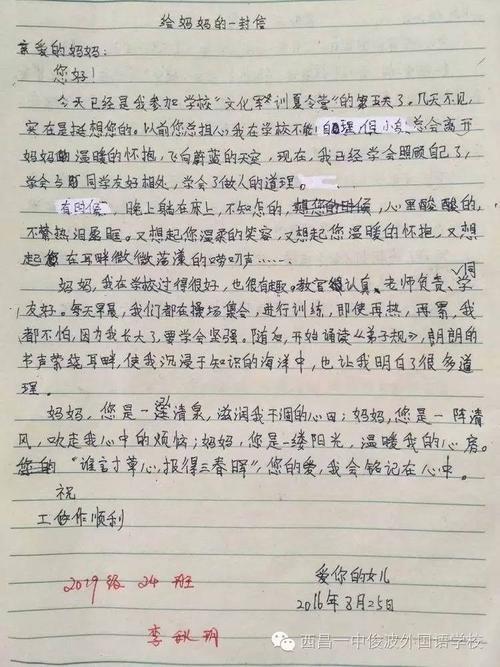 给妈妈的一封信
亲爱的妈妈:
您好!
今天已经是我参加学校“文化军训夏令营”的第五天了。几天不见,
实在是挺想您的。以前您总担心我在学校不能自理,但小鸟总会离开
妈妈的温暖的怀抱,飞向蔚蓝的天空,现在,我已经学会照顾自己了,
学会与同学友好相处,学会了做人的道理。
有时候,晚上躺在床上,不知怎的,想您的时候,心里酸酸的,
不禁热泪盈眶。又想起您温柔的笑容,又想起您温暖的怀抱,又想
起您在耳畔微微荡漾的唠叨声……
妈妈,我在学校过得很好,也很有趣。教官很认真。老师负责、同学
友好。每天早晨,我们都在操场集会,进行训练,即使再热,再累,我
都不怕,因为我长大了,要学会坚强。随后,开始诵读《弟子规》,朗朗的
书声萦绕耳畔,使我沉浸于知识的海洋中,也让我明白了很多道
理。
妈妈,您是一湾清泉,滋润我干涸的心田;妈妈,您是一阵清
风,吹走我心中的烦恼;妈妈,您是一缕阳光,温暖我的心房。
您的“谁言寸草心,报得三春晖”,您的爱,我会铭记在心中。
祝
工作顺利
爱你的女儿
2016年8月25日
2019级 24班
李秋玥
西昌一中俊波外国语学校